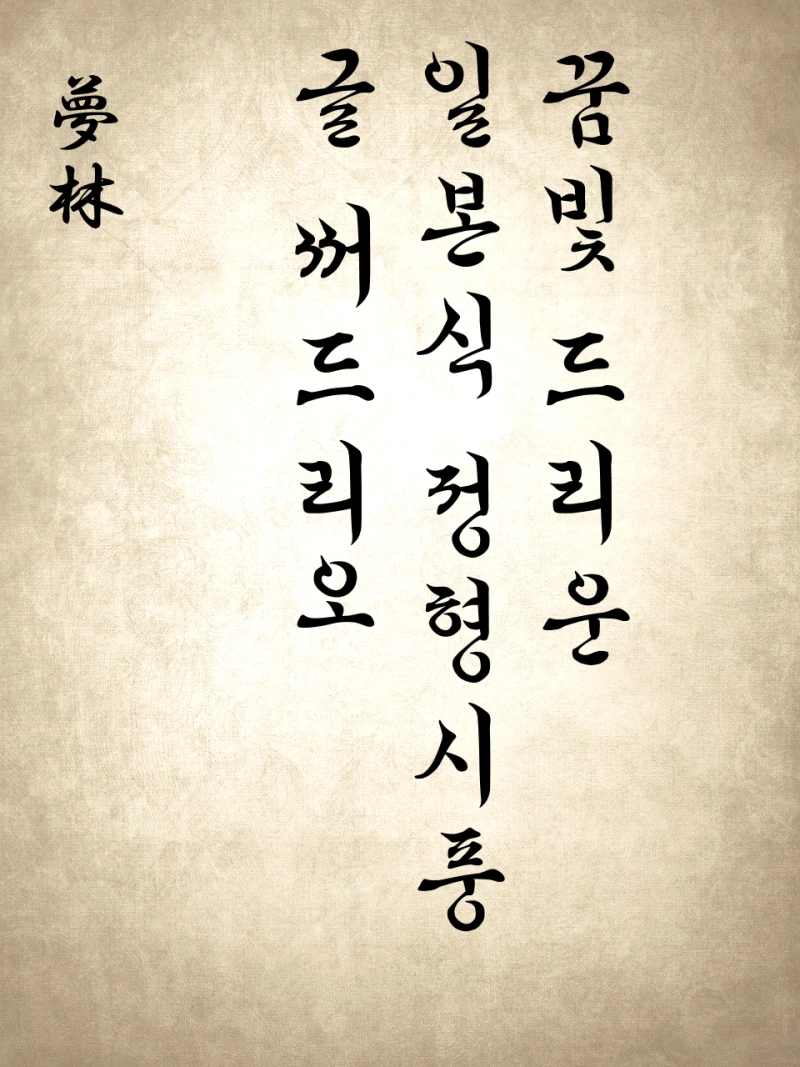 꿈빛 드리운
일본식 정형시풍
글 꺼드리오
夢林